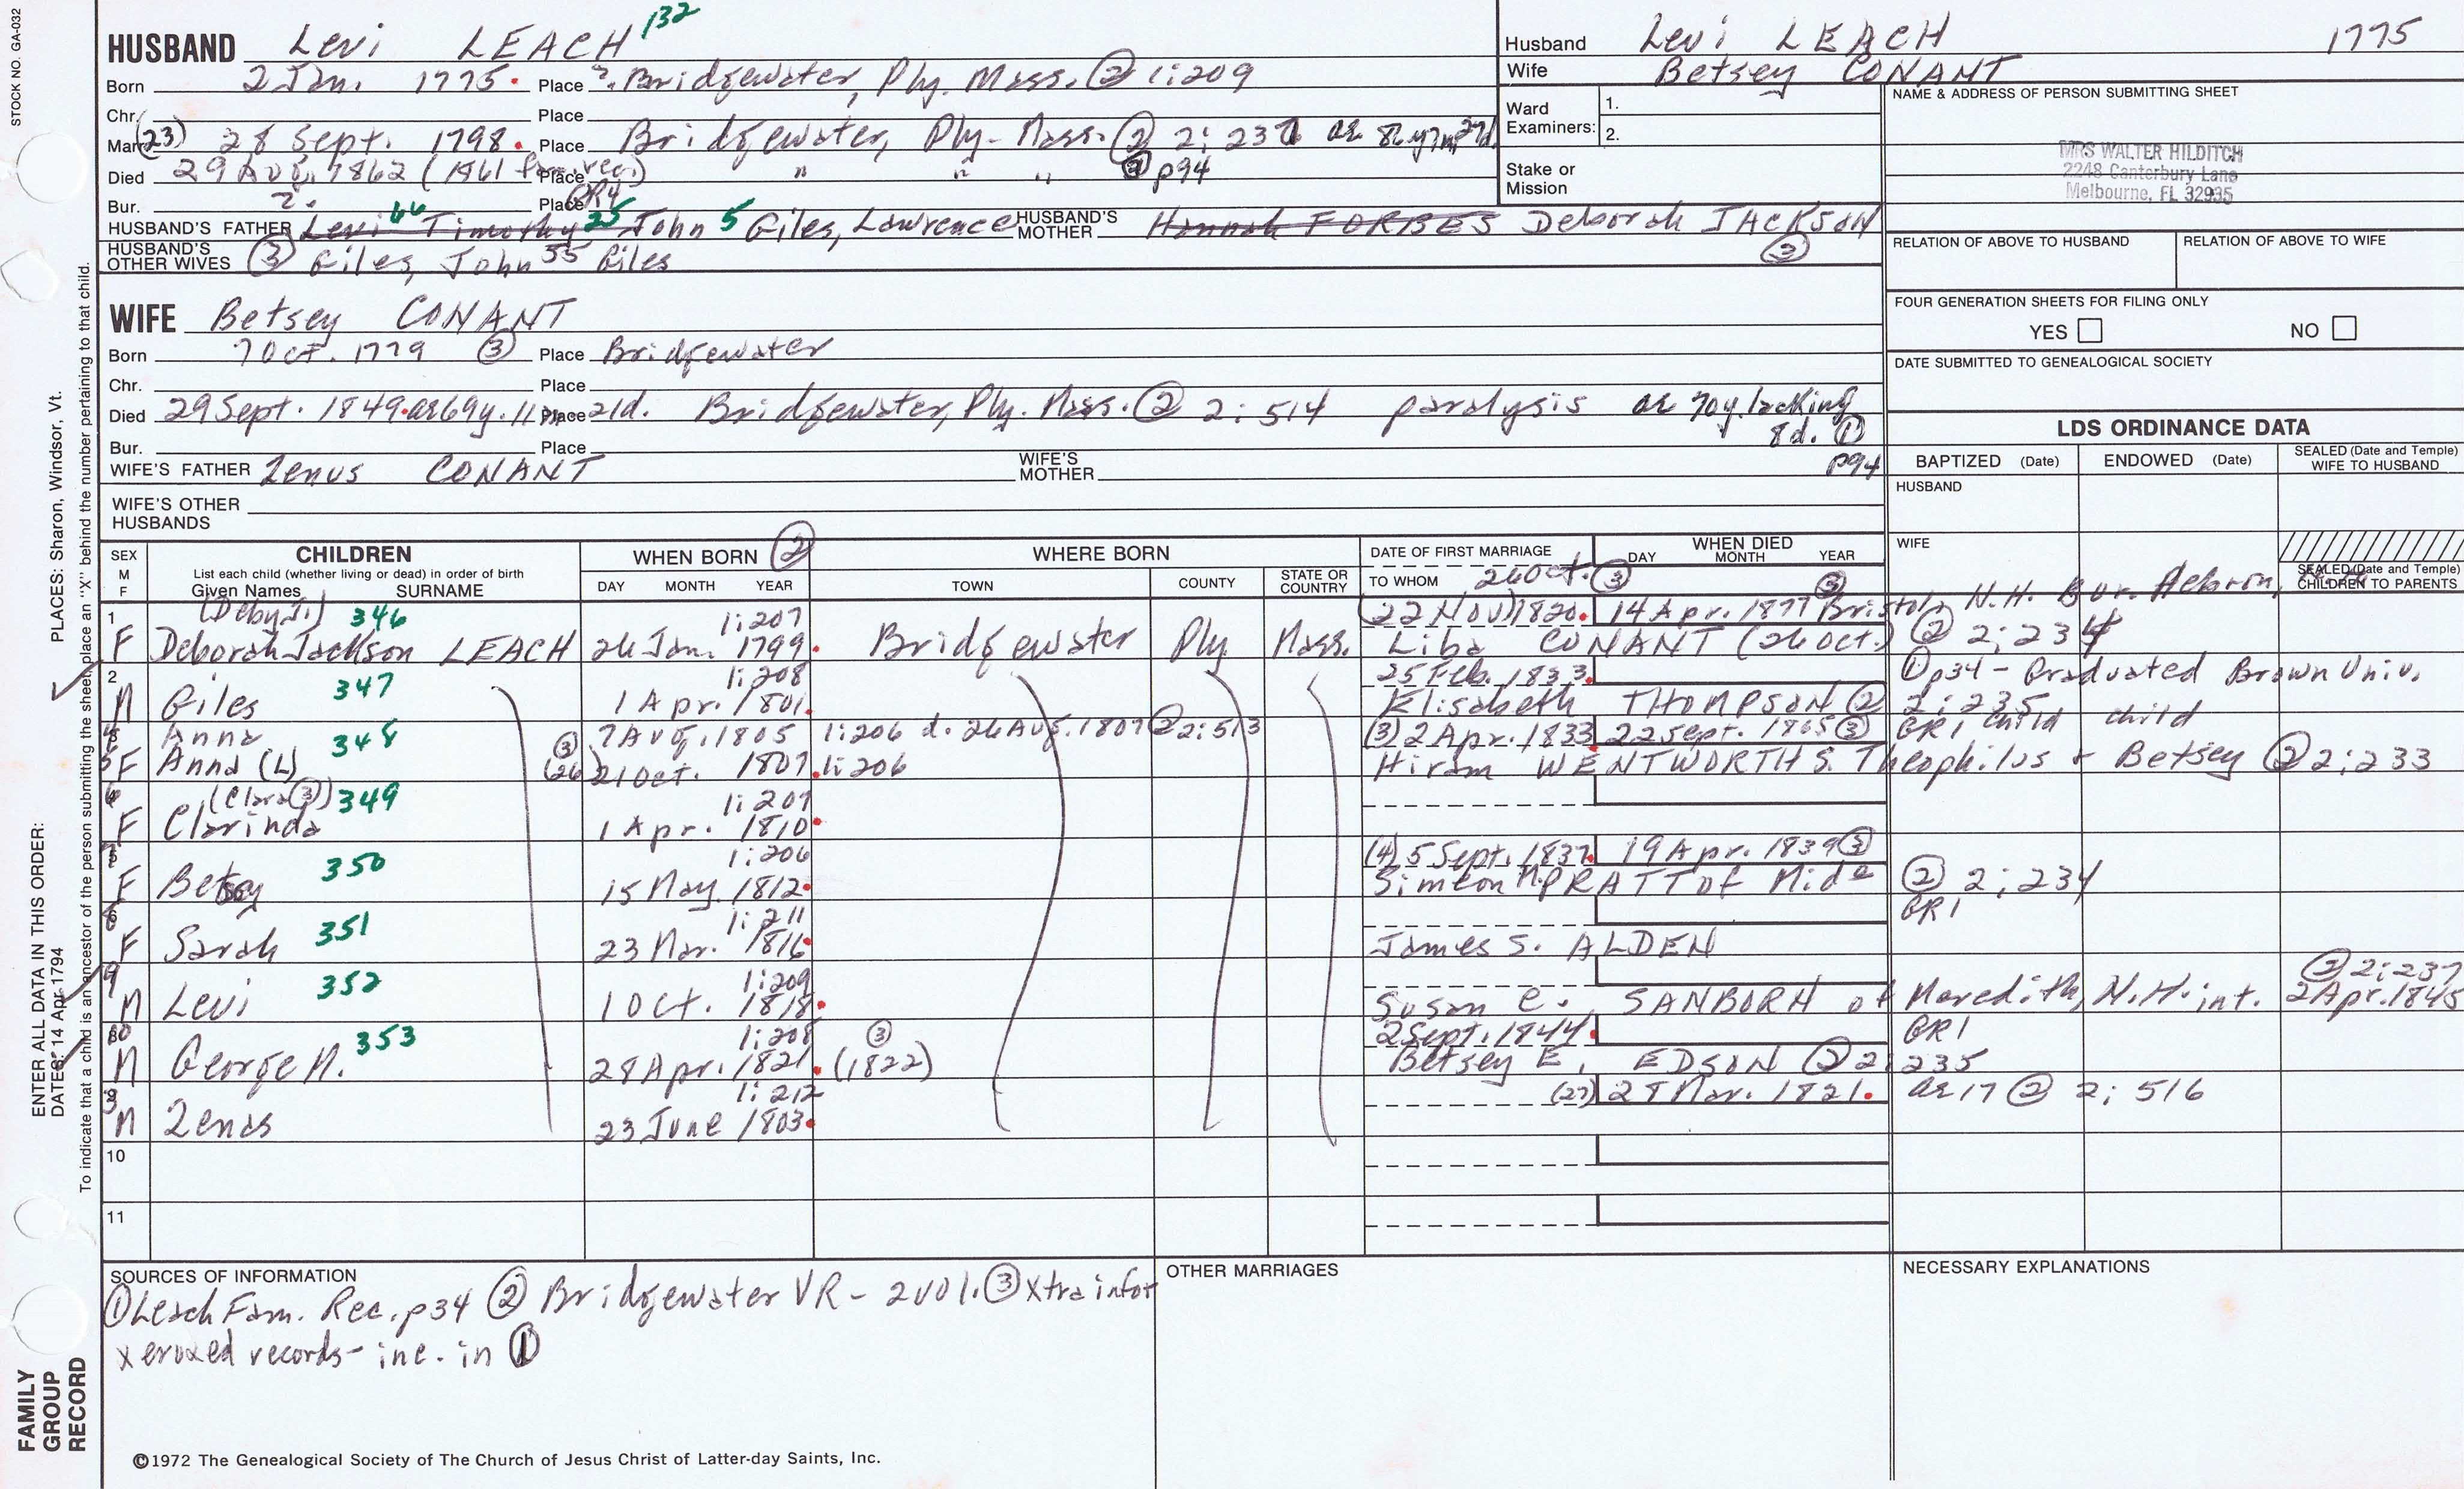 STOCK NO. GA-032
HUSBAND Levi LEACH 132
Born 2 Jan. 1775. Place ?. Bridgewater, Ply. Mass. ② 1:209
Chr. Place
Marr. (23) 28 Sept. 1798. Place Bridgewater, Ply. Mass. ②
Died 29 Aug. 1862 (1861 Place " " " ② p94
Bur. ?. Place GR4
HUSBAND'S FATHER Levi 66 Timothy 25 John 5 Giles, Lawrence HUSBAND'S MOTHER Hannah FORBES Deborah JACKSON ③
HUSBAND'S OTHER WIVES ③ Giles, John 55 Giles
WIFE Betsey CONANT
Born 7 Oct. 1779 ③ Place Bridgewater
Chr. Place
Died 29 Sept. 1849. ae 69y. 11 Place 21d. Bridgewater, Ply. Mass. ② 2:514 paralysis ae 70y. lacking
8d. ①
Bur. Place
WIFE'S FATHER Zenus CONANT WIFE'S MOTHER p94
WIFE'S OTHER HUSBANDS
Husband Levi LEACH 1775
Wife Betsey CONANT
Ward Examiners: 1.
2.
Stake or Mission
NAME & ADDRESS OF PERSON SUBMITTING SHEET
MRS WALTER HILDITCH
2248 Canterbury Lane
Melbourne, FL 32935
RELATION OF ABOVE TO HUSBAND RELATION OF ABOVE TO WIFE
FOUR GENERATION SHEETS FOR FILING ONLY
YES NO
DATE SUBMITTED TO GENEALOGICAL SOCIETY
LDS ORDINANCE DATA
BAPTIZED (Date) ENDOWED (Date) SEALED (Date and Temple) WIFE TO HUSBAND
HUSBAND
WIFE
SEALED (Date and Temple) CHILDREN TO PARENTS
SEX M F CHILDREN WHEN BORN ② WHERE BORN DATE OF FIRST MARRIAGE WHEN DIED
List each child (whether living or dead) in order of birth
Given Names SURNAME DAY MONTH YEAR TOWN COUNTY STATE OR COUNTRY TO WHOM 26 Oct. ③ DAY MONTH YEAR
1 (Deby J.) 346 1:207 (22 Nov) 1820. 14 Apr. 1877 ③ Bristol, N.H. Bur. Hebron,
F Deborah Jackson LEACH 26 Jan. 1799. Bridgewater Ply Mass. Liba CONANT (26 Oct.) ② 2:234
2 347 1:208 25 Feb. 1833. ① p34 - Graduated Brown Univ.
M Giles 1 Apr. 1801. Elisabeth THOMPSON ② 2:235
Anna 348 7 Aug. 1805 1:206 d. 26 Aug. 1807 ② 2:513 (3) 2 Apr. 1833 22 Sept. 1865 ③ GR1 child child
F Anna (L) ③ (26) 21 Oct. 1807. 1:206 Hiram WENTWORTH S. Theophilus + Betsey ② 2:233
6 (Clara ③) 349 1:207
F Clarinda 1 Apr. 1810.
350 1:206 (4) 5 Sept. 1837. 19 Apr. 1839 ③
F Betsey 15 May 1812. Simeon M. PRATT of Mid ② 2:234
GR1
351 1:211
F Sarah 23 Mar. 1816. James S. ALDEN
9 352 1:209 ② 2:237
M Levi 1 Oct. 1818. Susan C. SANBORN of Meredith, N.H. int. 2 Apr. 1845
353 1:208 ③ 2 Sept. 1844. GR1
M George M. 28 Apr. 1821. (1822) Betsey E. EDSON ② 2:235
1:212 (27) 28 Mar. 1821. ae 17 ② 2:516
M Zenas 23 June 1803.
10
11
SOURCES OF INFORMATION
① Leach Fam. Rec. p34 ② Bridgewater VR - 2 vol. ③ Xtra infor
xeroxed records - inc. in ①
OTHER MARRIAGES
NECESSARY EXPLANATIONS
©1972 The Genealogical Society of The Church of Jesus Christ of Latter-day Saints, Inc.
ENTER ALL DATA IN THIS ORDER:
DATES: 14 Apr 1794
PLACES: Sharon, Windsor, Vt.
To indicate that a child is an ancestor of the person submitting the sheet, place an "X" behind the number pertaining to that child.
FAMILY
GROUP
RECORD